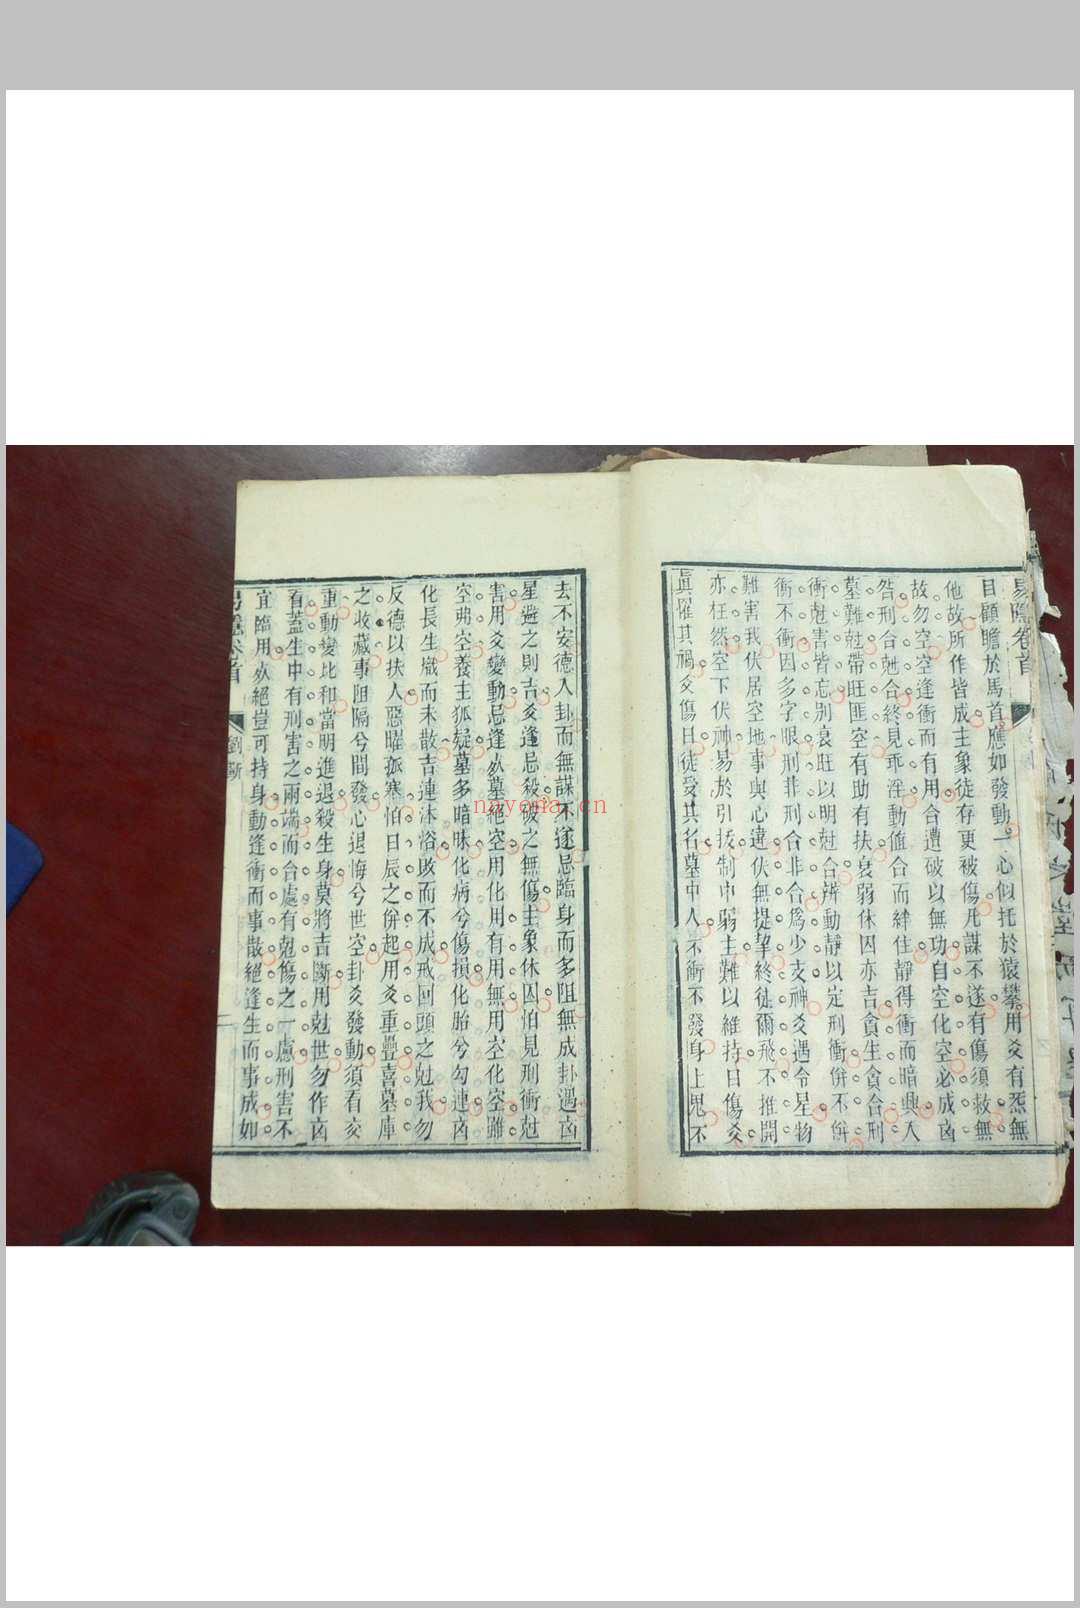 易隱卷首
目顧瞻於馬首應如發動一心似托於猿攀用爻有炁無
他故所作皆成主象徒存更被傷凡謀不遂有傷須救無
故勿空空逢衝而有用合遭破以無功自空化空必成凶
咎刑合尅合終見乖淫動值合而絆住靜得衝而暗興入
墓難尅帶旺匪空有助有扶衰弱休囚亦吉貪生貪合刑
衝尅害皆忘別衰旺以明尅合辨動靜以定刑衝併不併
衝不衝因多字眼刑非刑合非合爲少支神爻遇令星物
難害我伏居空地事與心違伏無提挈終徒爾飛不推開
亦枉然空下伏神易於引拔制中弱主難以維持日傷爻
眞罹其禍爻傷日徒受其名墓中人不衝不發身上鬼不
去不安德入卦而無謀不遂忌臨身而多阻無成卦遇凶
星避之則吉爻逢忌殺破之無傷主象休囚怕見刑衝尅
害用爻變動忌逢㱕墓絕空用化用有用無用空化空雖
空弗空養主狐疑墓多暗昧化病兮傷損化胎兮勾連凶
化長生熾而未散吉連沐浴敗而不成戒回頭之尅我勿
反德以扶人惡曜孤寒怕日辰之併起用爻重疊喜墓庫
之收藏事阻隔兮間發心退悔兮世空卦爻發動須看交
重動變比和當明進退殺生身莫將吉斷用尅世勿作凶
看蓋生中有刑害之兩端而合處有尅傷之一慮刑害不
宜臨用㱕絕豈可持身動逢衝而事散絕逢生而事成如
易隱卷首
劉斷
nayona.cn